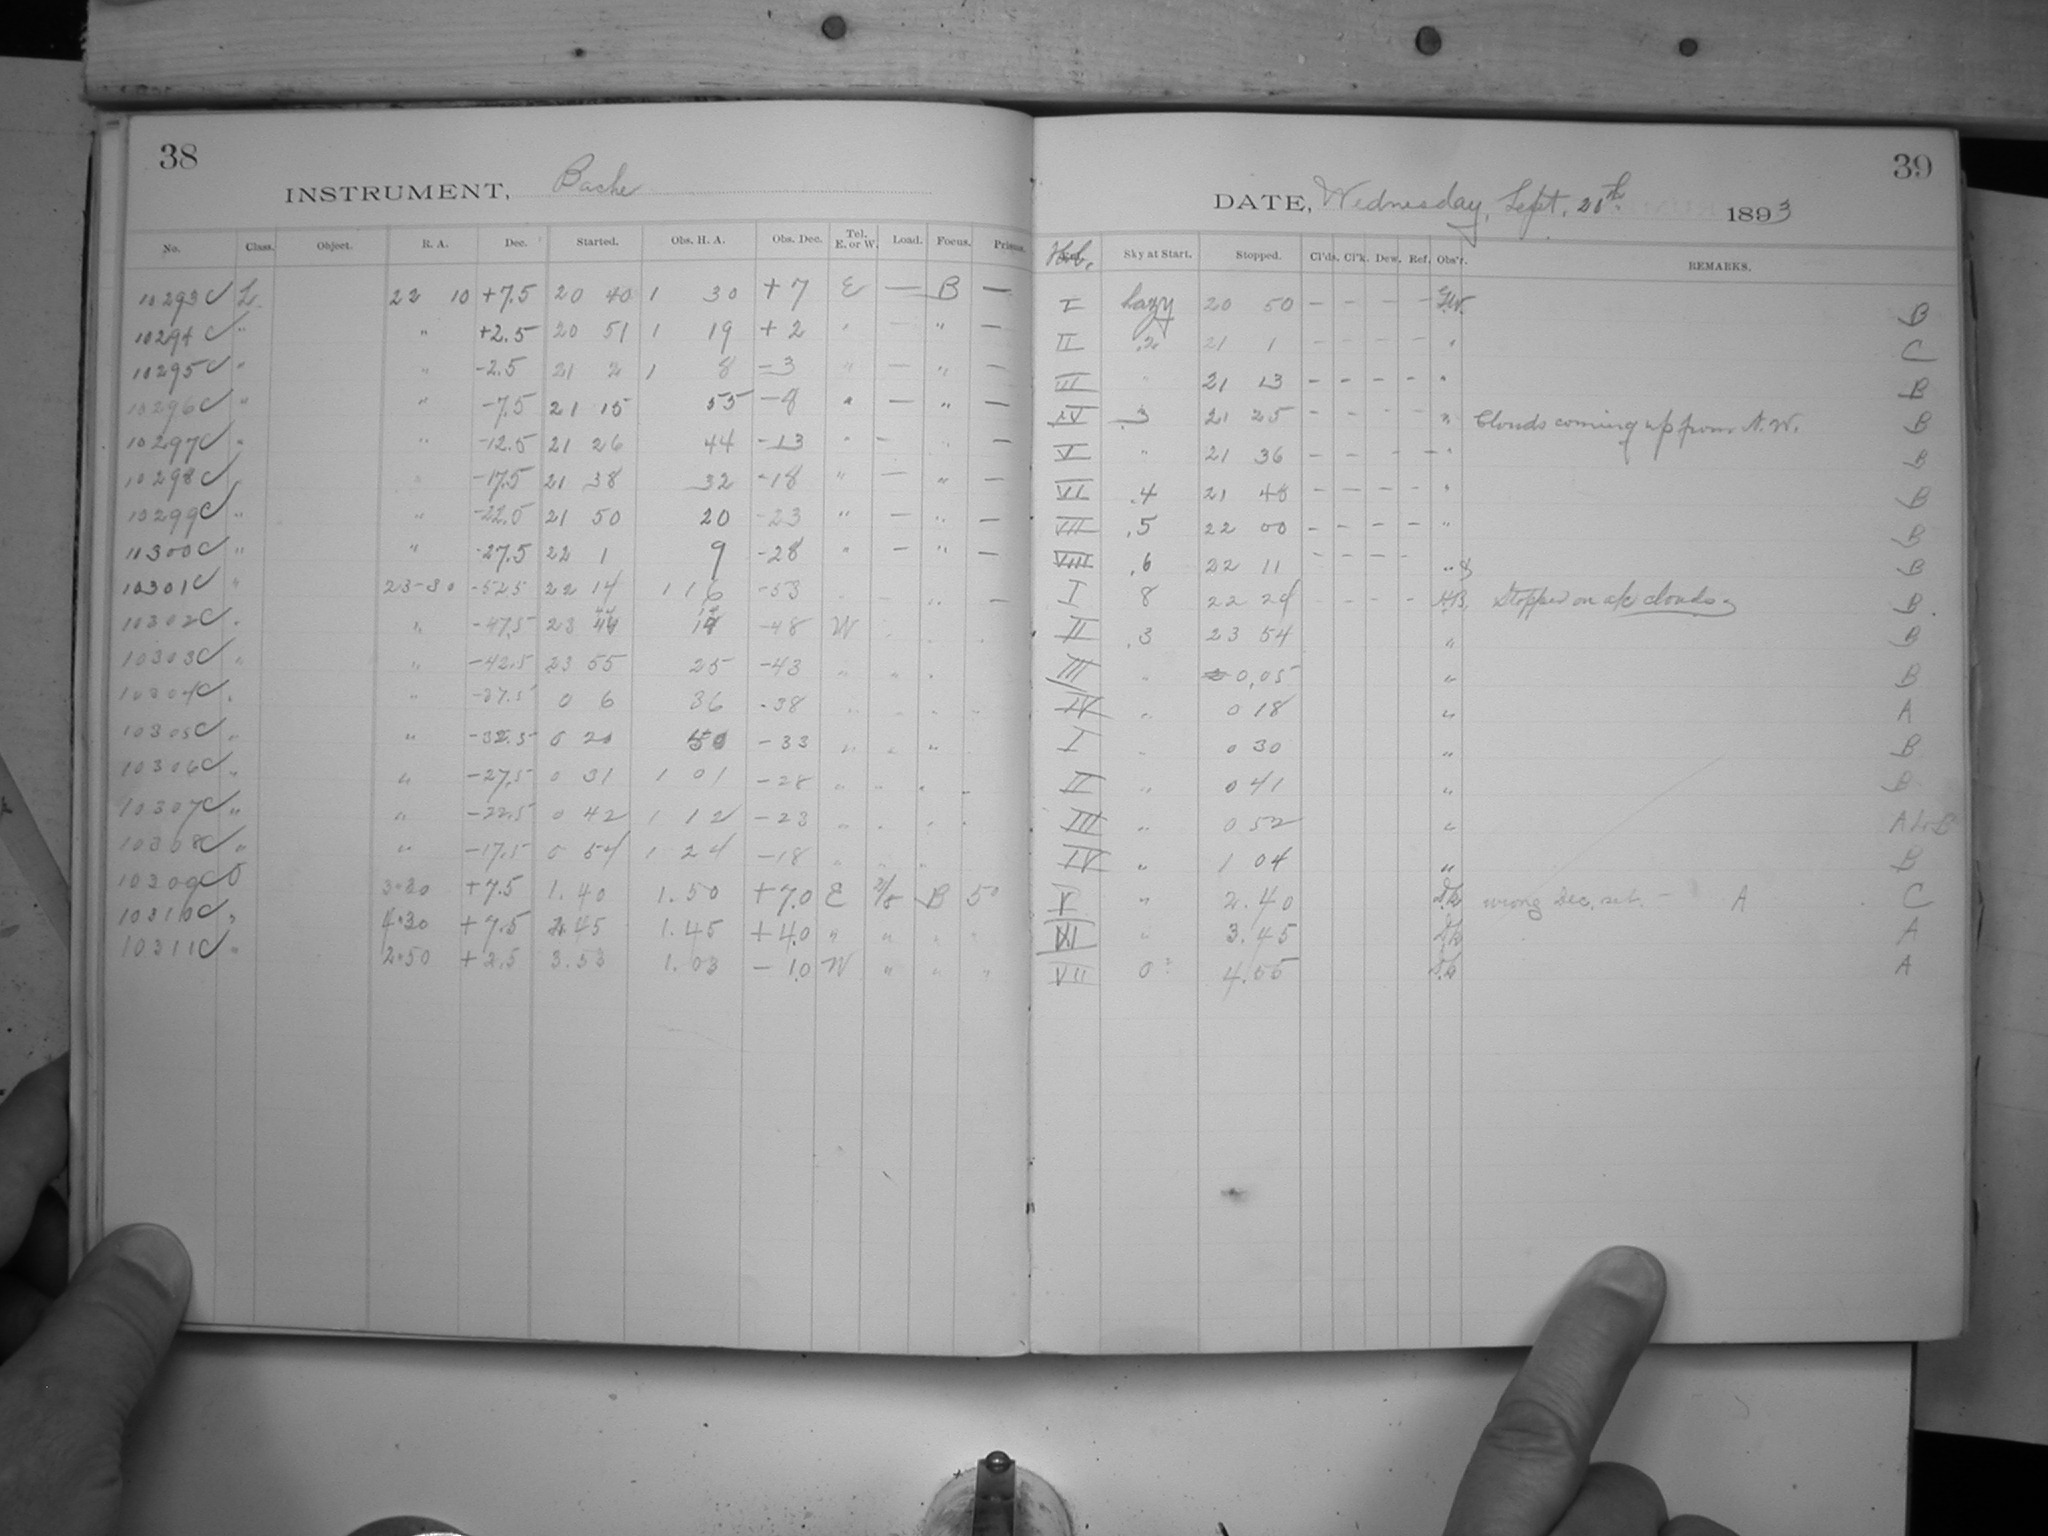 38
INSTRUMENT, Bache
No. Class. Object. R. A. Dec. Started. Obs. H. A. Obs. Dec. Tel. E. or W. Load. Focus. Prisms.
10293 C L 22 10 +7.5 20 40 1 30 +7 E — B —
10294 C " " +2.5 20 51 1 19 +2 " — " —
10295 C " " -2.5 21 2 1 8 -3 " — " —
10296 C " " -7.5 21 15 55 -8 " — " —
10297 C " " -12.5 21 26 44 -13 " — " —
10298 C " " -17.5 21 38 32 -18 " — " —
10299 C " " -22.5 21 50 20 -23 " — " —
11300 C " " -27.5 22 1 9 -28 " — " —
10301 C " 23-30 -52.5 22 14 1 16 -53 " — " —
10302 C " " -47.5 23 44 14 -48 W " " "
10303 C " " -42.5 23 55 25 -43 " " "
10304 C " " -37.5 0 6 36 -38 " " " "
10305 C " " -32.5 0 20 50 -33 " " "
10306 C " " -27.5 0 31 1 01 -28 " " " "
10307 C " " -22.5 0 42 1 12 -23 " " " "
10308 C " " -17.5 0 54 1 24 -18 " " "
10309 C O 3.20 +7.5 1.40 1.50 +7.0 E B 50
10310 C " 4.30 +7.5 2.45 1.45 +4.0 " " " "
10311 C " 2.50 +2.5 3.53 1.03 -1.0 W " " "
39
DATE, Wednesday, Sept. 20th. 1893
Sky at Start. Stopped. Cl'ds. Cl'k. Dew. Ref. Obs'r. REMARKS.
I hazy 20 50 — — — — G.W. B
II .2 21 1 — — — — " C
III " 21 13 — — — — " B
IV .3 21 25 — — — — " Clouds coming up from N.W. B
V " 21 36 — — — — " B
VI .4 21 48 — — — — " B
VII .5 22 00 — — — — " B
VIII .6 22 11 — — — — " B
I 8 22 24 — — — — Stopped on a/c clouds B
II .3 23 54 " B
III " 0.05 " B
IV " 0 18 " A
I " 0 30 " B
II " 0 41 " B
III " 0 52 " A to B
IV " 1 04 " B
V " 2.40 wrong Dec. set. — A C
VI " 3.45 A
VII 0? 4.55 A